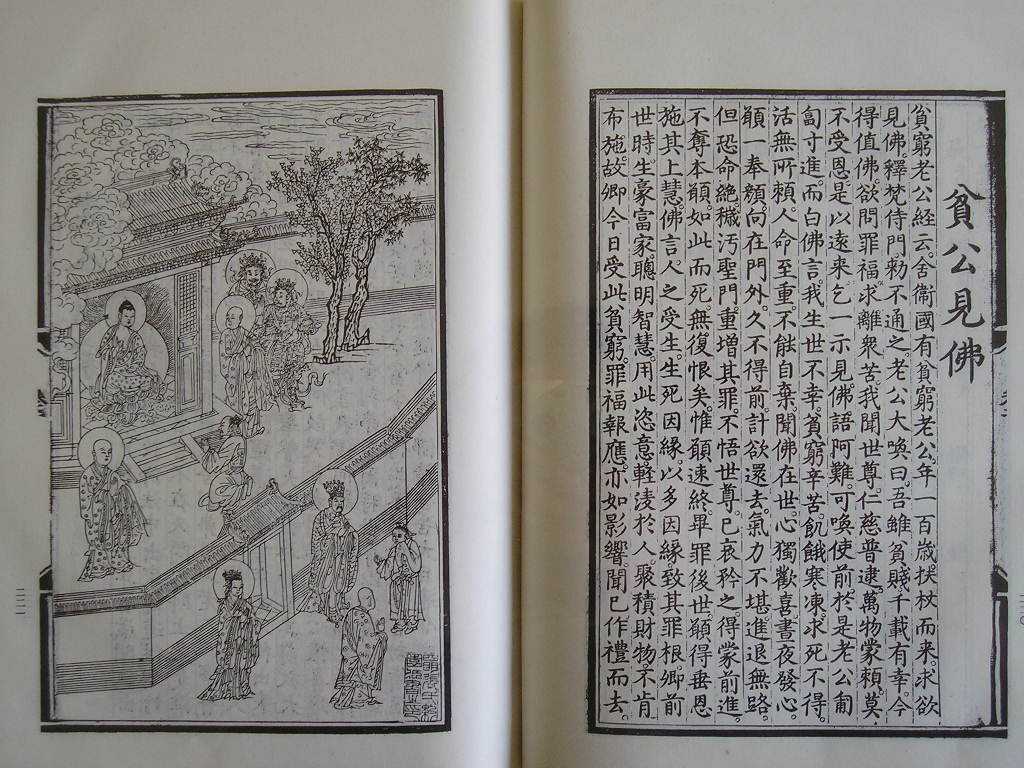 貧公見佛
貧窮老公経云。舍衞國有貧窮老公。年一百歲。扶杖而來。求欲
見佛。釋梵侍門。勅不通之。老公大喚曰。吾雖貧賤。千載有幸。今
得值佛。欲問罪福。求離衆苦。我聞世尊仁慈普逮。萬物蒙賴。莫
不受恩。是以遠來乞一示見。佛語阿難。可喚使前。於是老公匍
匐寸進。而白佛言。我生世不幸。貧窮辛苦。飢餓寒凍。求死不得。
活無所賴。人命至重。不能自棄。聞佛在世。心獨歡喜。晝夜發心。
願一奉顏。向在門外。久不得前。計欲還去。氣力不堪。進退無路。
但恐命絕。穢汚聖門。重增其罪。不悟世尊。已哀矜之。得蒙前進。
不奪本願。如此而死。無復恨矣。惟願速終。畢罪後世。願得垂恩
施其上慧。佛言。人之受生。生死因緣。以多因緣。致其罪根。卿前
世時。生豪富家。聰明智慧。用此恣意。輕淩於人。聚積財物。不肯
布施。故卿今日受此貧窮。罪福報應。亦如影響。聞已作禮而去。